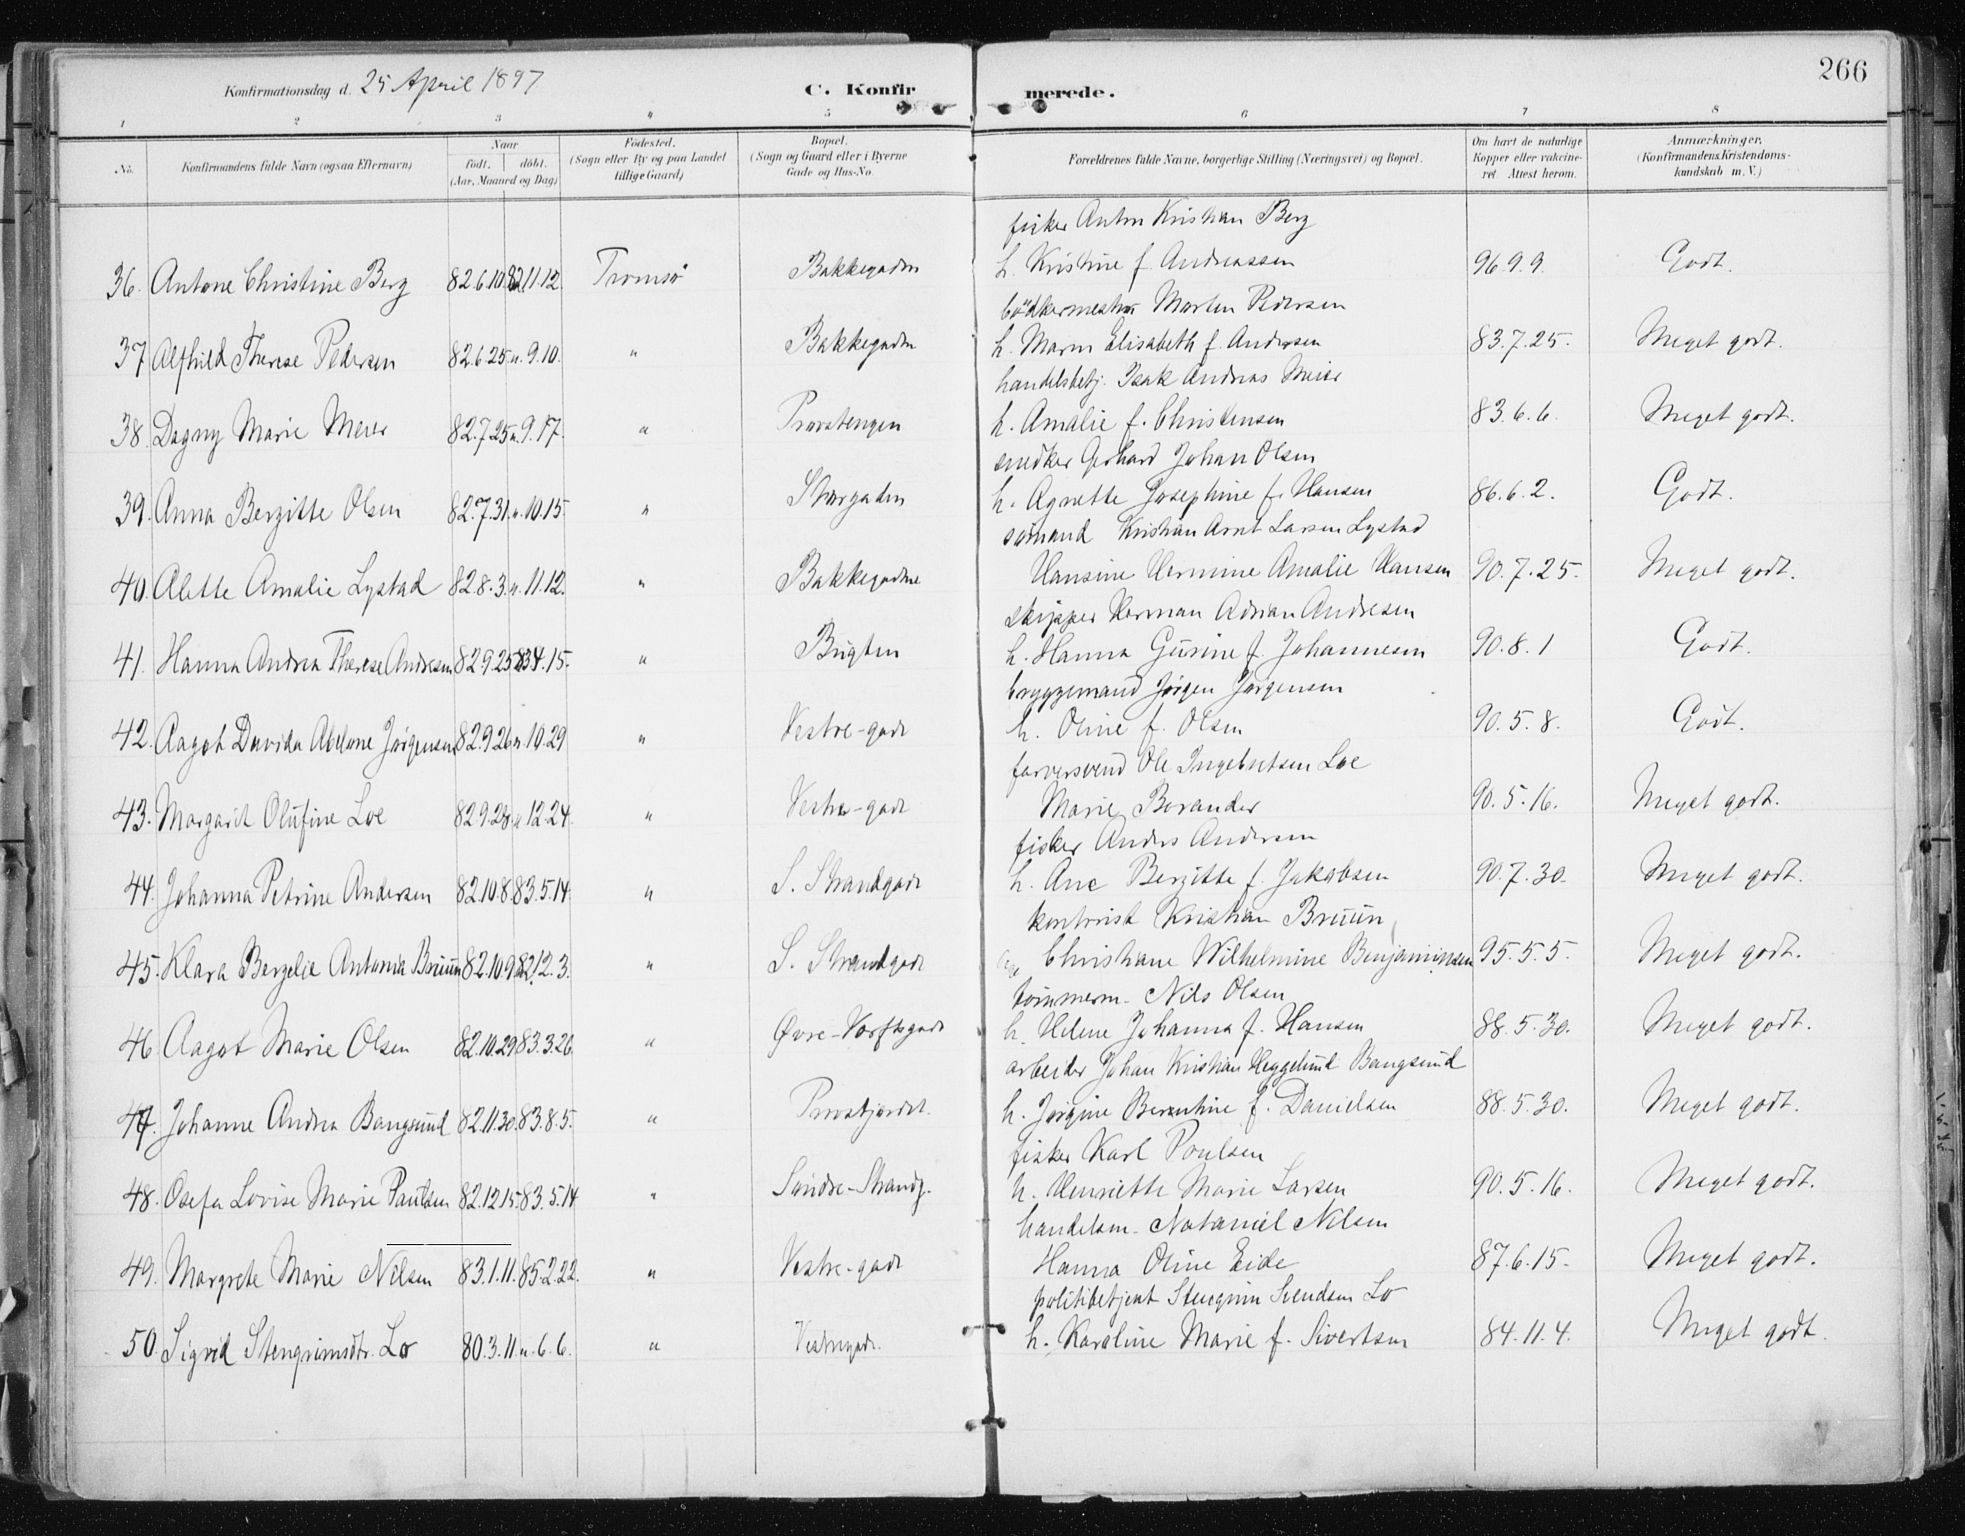 266
Konfirmationsdag d. 25 April 1897
C. Konfirmerede.
1 2 3 4 5 6 7 8
No. Konfirmandens fulde Navn (ogsaa Efternavn) Naar født. døbt. (Aar, Maaned og Dag) Fødested. (Sogn eller By og paa Landet tillige Gaard) Bopæl. (Sogn og Gaard eller i Byerne Gade og Hus-No. Forældrenes fulde Navne, borgerlige Stilling (Næringsvei) og Bopæl. Om havt de naturlige Kopper eller vakcineret. Attest herom. Anmærkninger. (Konfirmandens Kristendomskundskab m. V.)
fisker Anton Kristian Berg
36. Antone Christine Berg 82.6.10. 82.11.12. Tromsø Bakkegaden h. Kristine f. Andreassen 96.9.9. Godt.
bødkermester Morten Pedersen
37 Alfhild Therese Pedersen 82.6.25. „ 9.10. „ Bakkegaden h. Maren Elisabeth f. Andersen 83.7.25. Meget godt.
handelsbetj. Isak Andreas Meier
38. Dagny Marie Meier 82.7.25 „ 9.17. „ Provstengen h. Amalie f. Christensen 83.6.6. Meget godt.
snedker Gerhard Johan Olsen
39. Anna Bergitte Olsen 82.7.31. „ 10.15. „ Storgaden h. Agnette Josephine f. Hansen 86.6.2. Godt.
sømand Kristian Arnt Larsen Lystad
40. Alette Amalie Lystad 82.8.3. „ 11.12. „ Bakkegadne Hansine Hermine Amalie Hansen 90.7.25. Meget godt.
skipper Herman Adrian Andresen
41. Hanna Andrea Therese Andresen 82.9.25. 83.4.15. „ Bugten h. Hanna Gurine f. Johannesen 90.8.1 Godt.
bryggemand Jørgen Jørgensen
42. Aagot Davida Abelone Jørgensen 82.9.26 „ 10.29 „ Vestre-gade h. Oline f. Olsen 90.5.8. Godt.
farversvend Ole Ingebretsen Loe
43. Margarit Olufine Loe 82.9.28 „ 12.24. „ Vestre-gade Marie Borander 90.5.16. Meget godt.
fisker Anders Andersen
44. Johanna Petrine Andersen 82.10.8. 83.5.14. „ S. Strandgade h. Ane Bergitte f. Jakobsen 90.7.30. Meget godt.
kontorist Kristian Bruun
45. Klara Bergelie Antonia Bruun 82.10.9. 82.12.3. „ S. Strandgade Christiane Wilhelmine Benjaminsen 95.5.5. Meget godt.
tømmerm. Nils Olsen
46. Aagot Marie Olsen 82.10.29 83.3.26. „ Øvre-Værftsgade h. Helene Johanna f. Hansen 88.5.30. Meget godt.
arbeider Johan Kristian Heggelund Bangsund
47. Johanne Andrea Bangsund 82.11.30. 83.8.5. „ Provstjordet. h. Jørgine Berentine f. Danielsen 88.5.30. Meget godt.
fisker Karl Poulsen
48. Osefa Lovise Marie Paulsen 82.12.15. 83.5.14 „ Søndre-Strandg. h. Henriette Marie Larsen 90.5.16. Meget godt.
handelsm. Nataniel Nilsen
49. Margrete Marie Nilsen 83.1.11. 85.2.22. „ Vestre-gade Hanna Oline Eide 87.6.15. Meget godt.
politibetjent Stengrim Svendsen Lo
50. Sigrid Stengrimsdtr. Lo 80.3.11. „ 6.6. „ Vestregade. h. Karoline Marie f. Sivertsen 84.11.4. Meget godt.